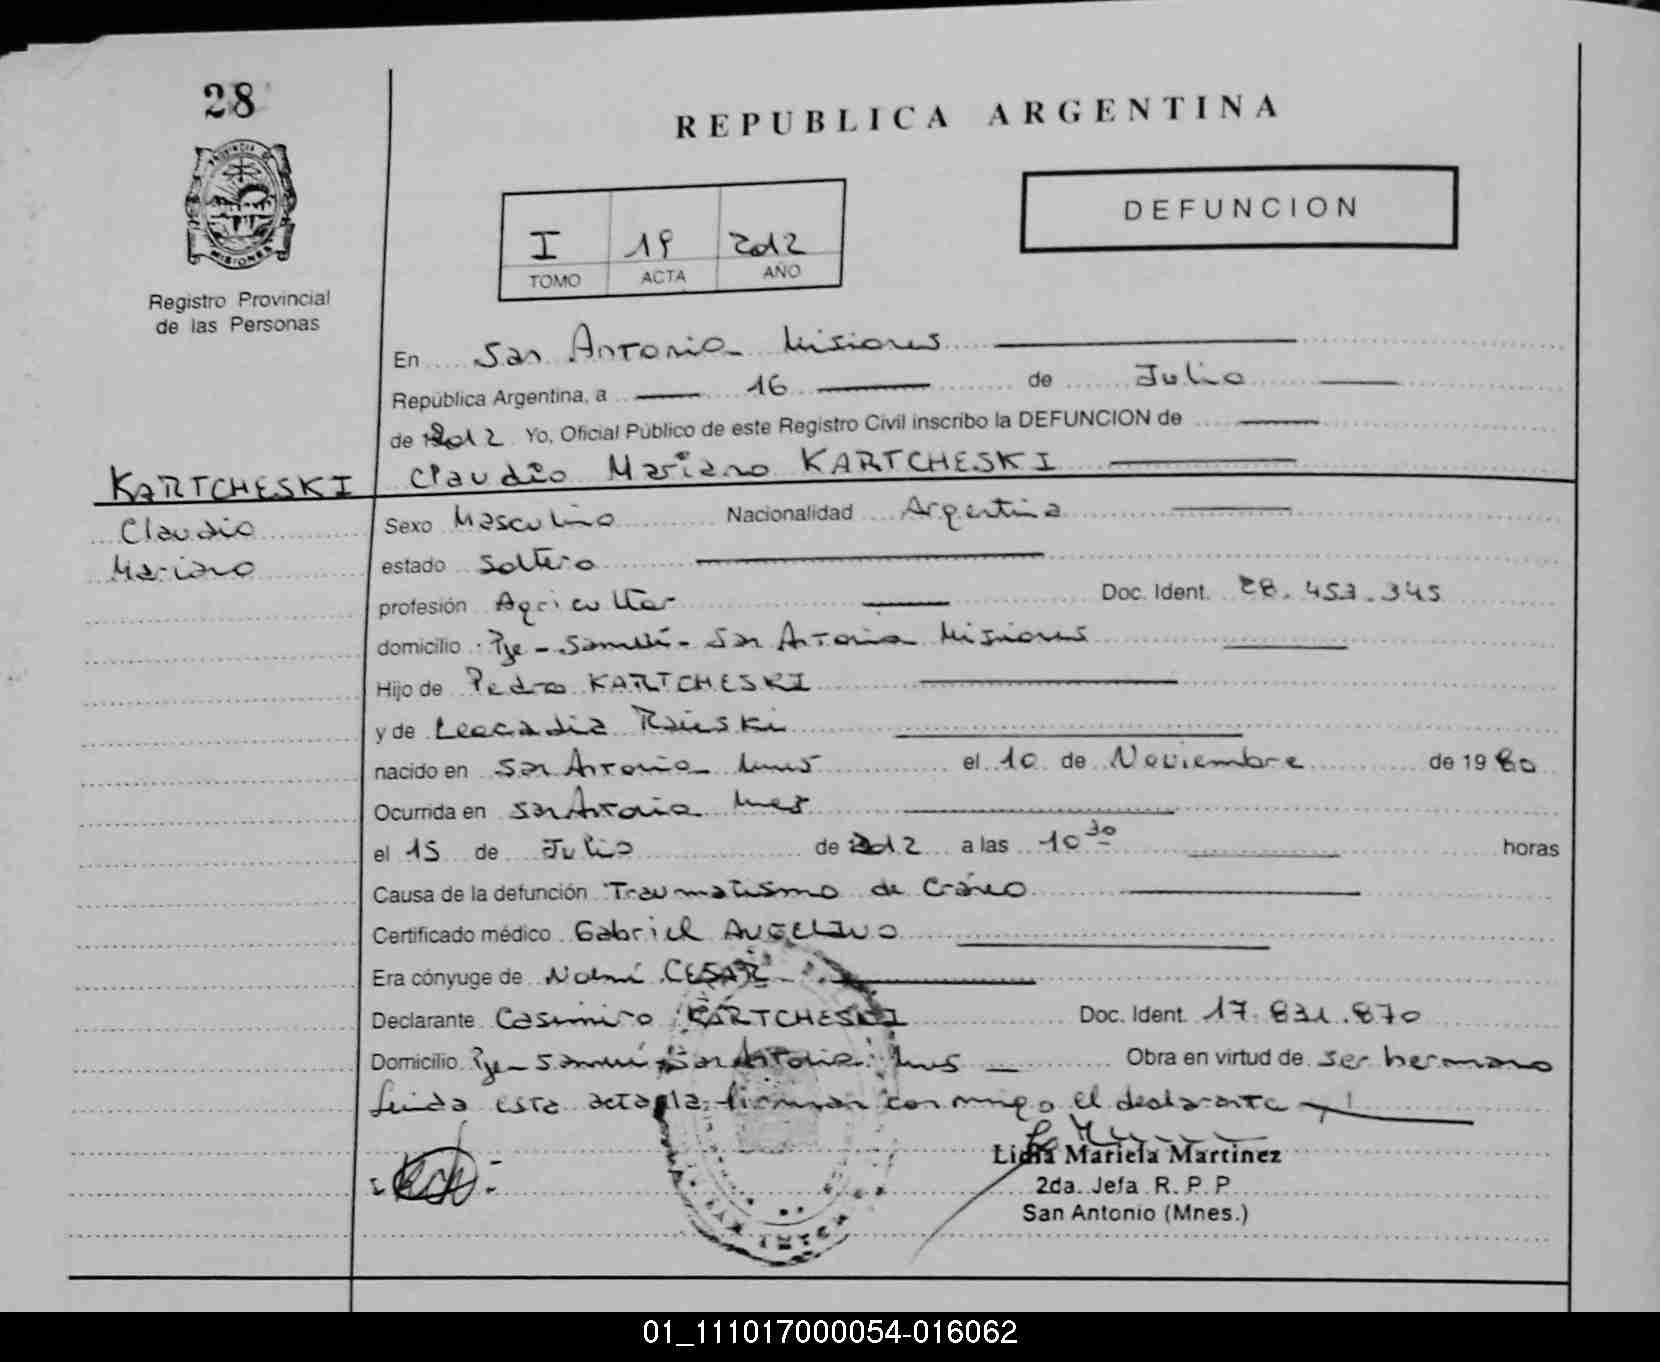 28
REPUBLICA ARGENTINA
DEFUNCION
I 19 2012
TOMO ACTA AÑO
PROVINCIA DE
MISIONES
Registro Provincial
de las Personas
En San Antonio Misiones
República Argentina, a 16 de Julio
de 2012 Yo, Oficial Público de este Registro Civil inscribo la DEFUNCION de
Claudio Mariano KARTCHESKI
KARTCHESKI
Claudio
Mariano
Sexo Masculino Nacionalidad Argentina
estado Soltero
profesión Agricultor Doc. Ident. 28.453.345
domicilio Pje - San Antonio Misiones
Hijo de Pedro KARTCHESKI
y de Leocadia
nacido en San Antonio Mnes el 10 de Noviembre de 1980
Ocurrida en San Antonio Mnes
el 15 de Julio de 2012 a las 10 30 horas
Causa de la defunción Traumatismo de Cráneo
Certificado médico Gabriel
Era cónyuge de Noemí CESAR
Declarante Casimiro KARTCHESKI Doc. Ident. 17.831.870
Domicilio Pje - San Antonio Mnes Obra en virtud de ser hermano
Leida esta acta la firman conmigo el declarante
Lidia Mariela Martinez
2da. Jefa R. P. P
San Antonio (Mnes.)
01_111017000054-016062